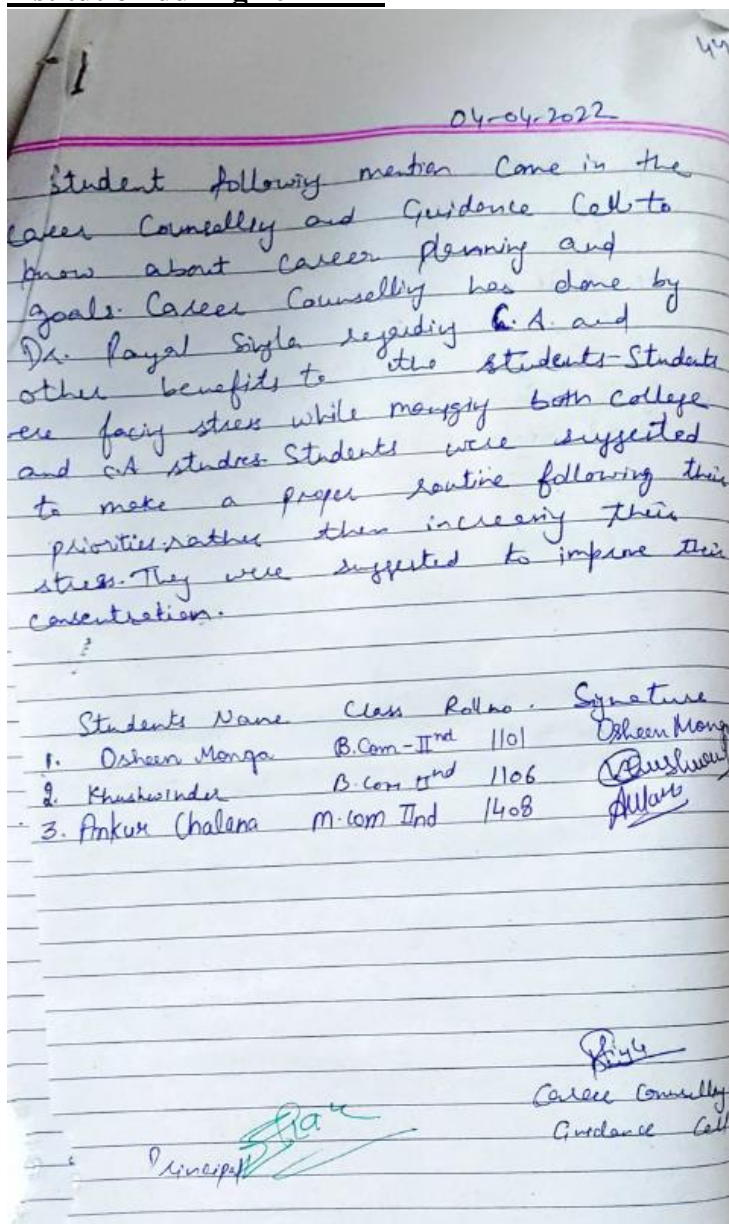 44
04-04-2022
Student following mention Come in the
Career Counselling and Guidance Cell to
know about career planning and
goals. Career Counselling has done by
Dr. Payal Singla regarding C.A. and
other benefits to the students. Students
ere facing stress while manging both College
and C.A studies. Students were suggested
to make a proper routine following their
priorities rather then increasing their
stress. They were suggested to improve their
concentration.
Students Name Class Roll no. Signature
1. Osheen Monga B.Com-IInd 1101 Osheen Monga
2. Khushwinder B.Com IInd 1106
3. Ankur Chalana M.com IInd 1408
Career Counselling
Guidance Cell
Principal